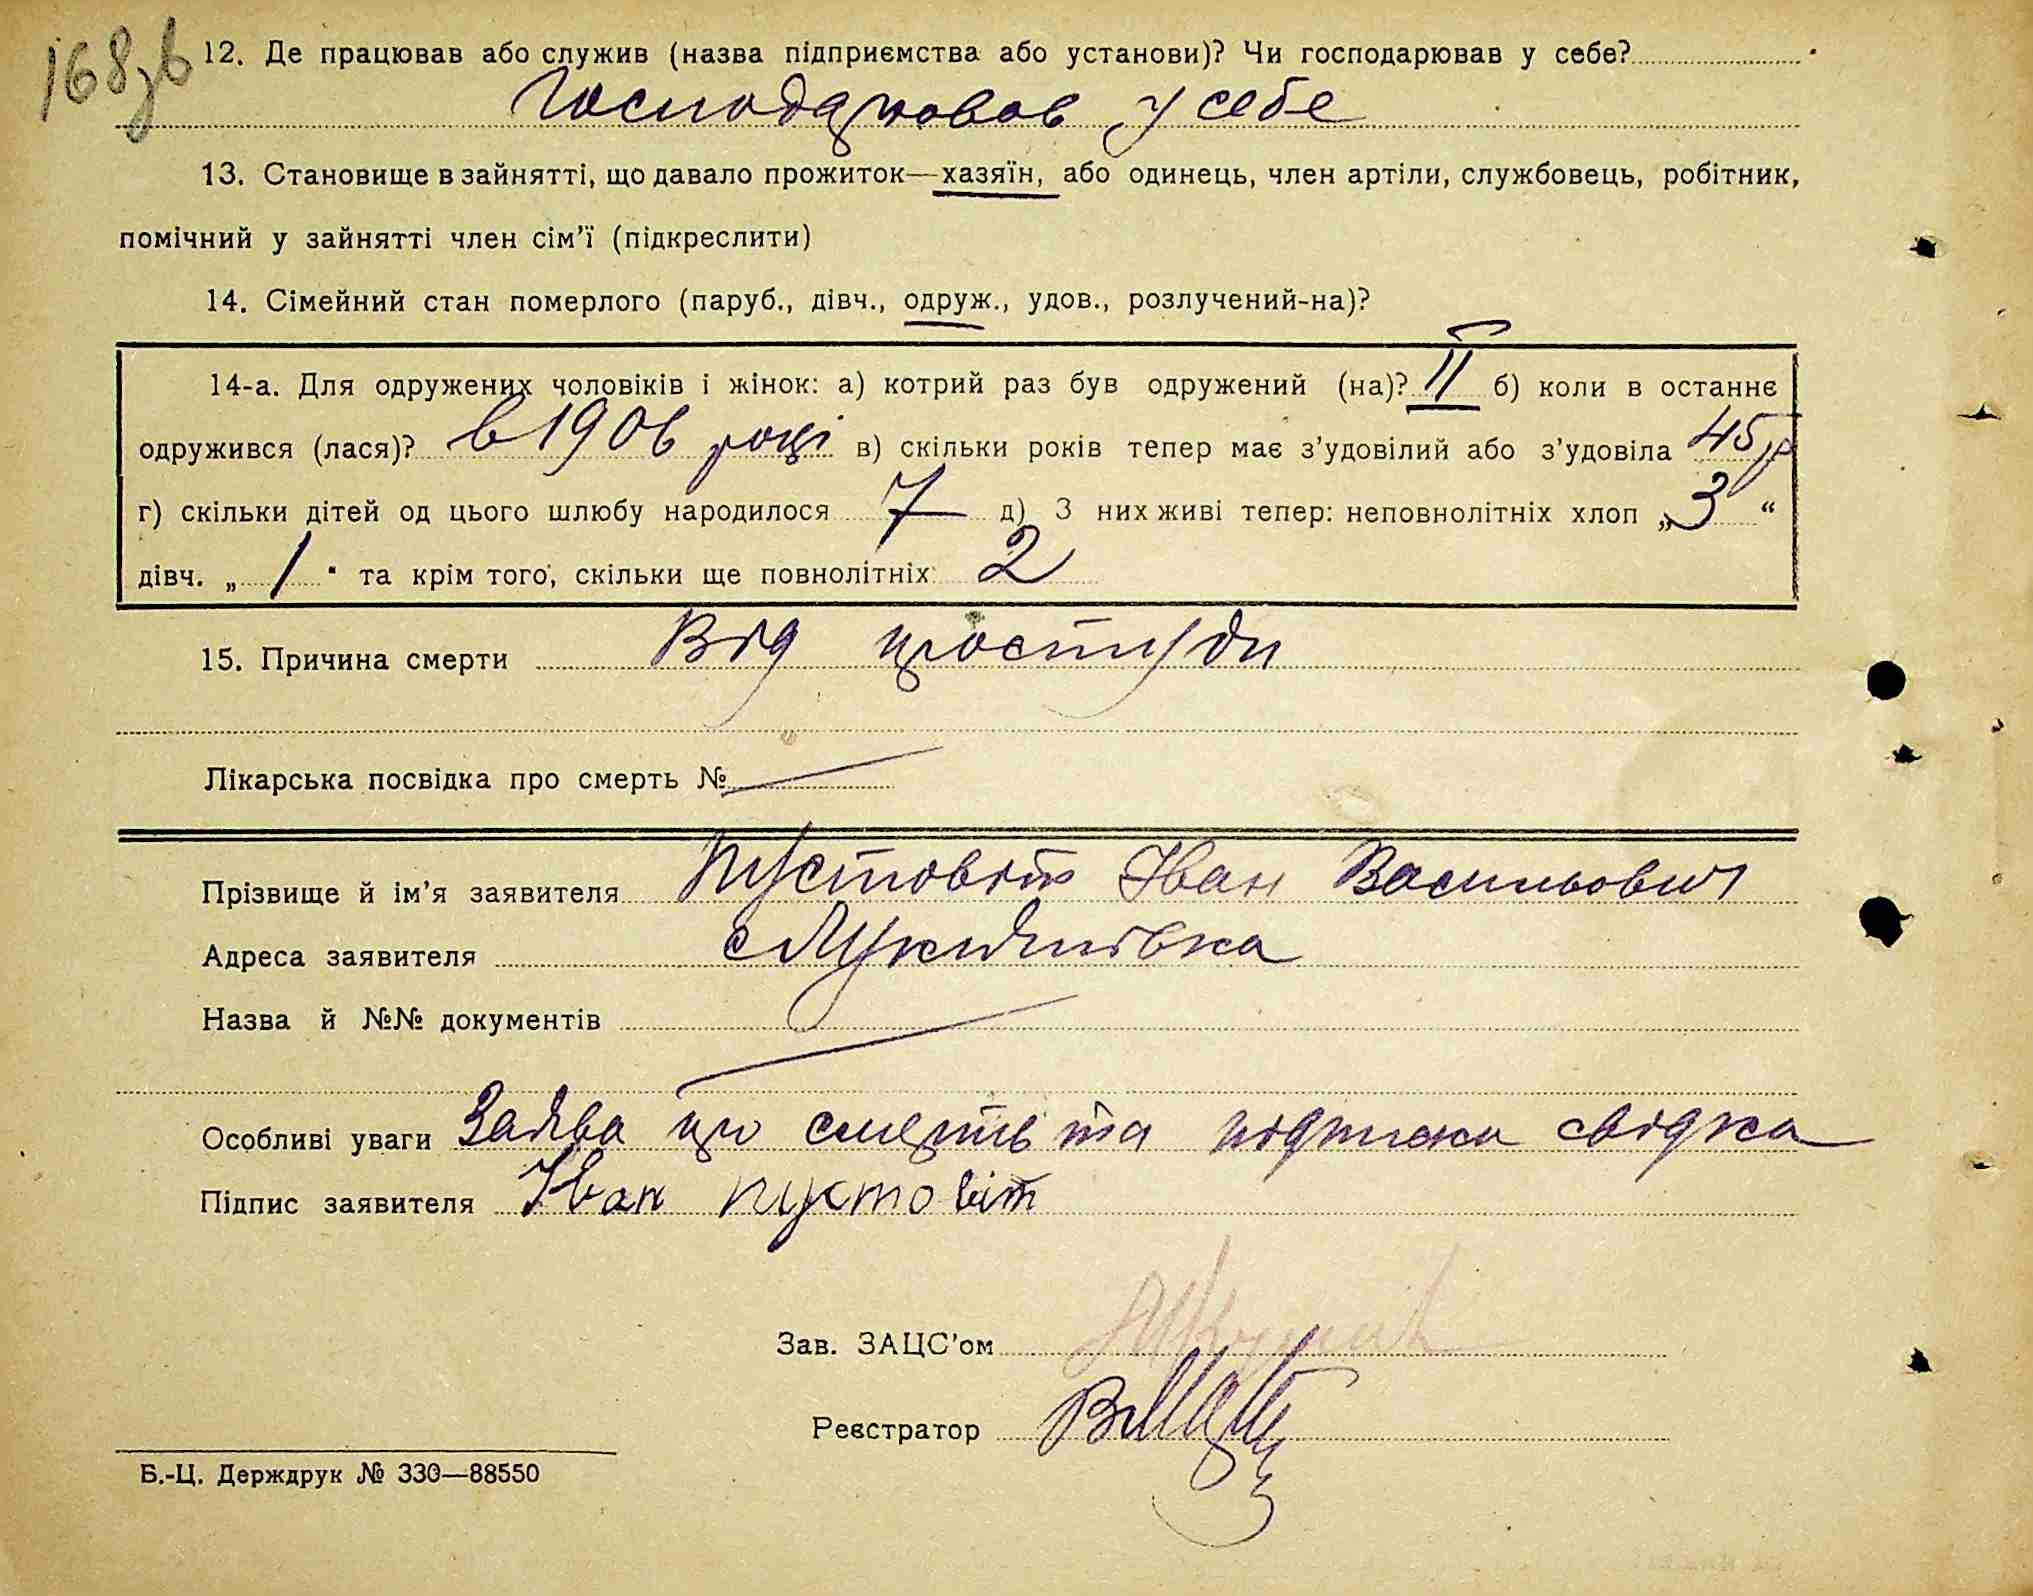 168зв
12. Де працював або служив (назва підприємства або установи)? Чи господарював у себе?
Господарював у себе
13. Становище в зайнятті, що давало прожиток—хазяїн, або одинець, член артіли, службовець, робітник,
помічний у зайнятті член сім'ї (підкреслити)
14. Сімейний стан померлого (паруб., дівч., одруж., удов., розлучений-на)?
14-а. Для одружених чоловіків і жінок: а) котрий раз був одружений (на)? II б) коли в останнє
одружився (лася)? в 1906 році в) скільки років тепер має з'удовілий або з'удовіла 45 р
г) скільки дітей од цього шлюбу народилося 7 д) З них живі тепер: неповнолітніх хлоп „3“
дівч. „1“ та крім того, скільки ще повнолітніх 2
15. Причина смерти Від простуди
Лікарська посвідка про смерть №
Прізвище й ім'я заявителя Пустовіт Іван Васильович
Адреса заявителя с Лукашівка
Назва й №№ документів
Особливі уваги Заява про смерть та підписка свідка
Підпис заявителя Іван пустовіт
Зав. ЗАЦС'ом
Реєстратор
Б.-Ц. Держдрук № 330—88550